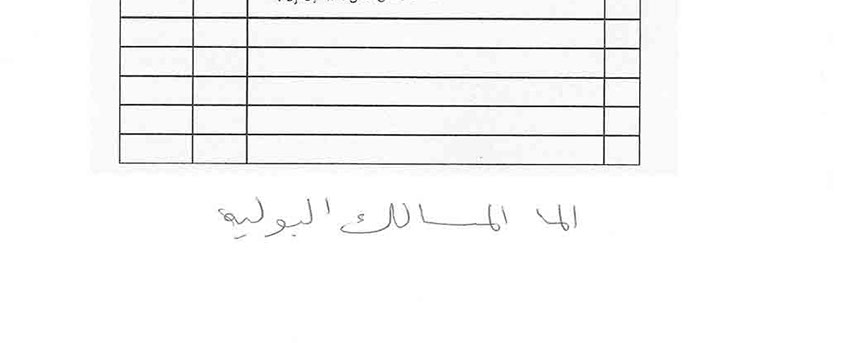 الما المسالك البولية